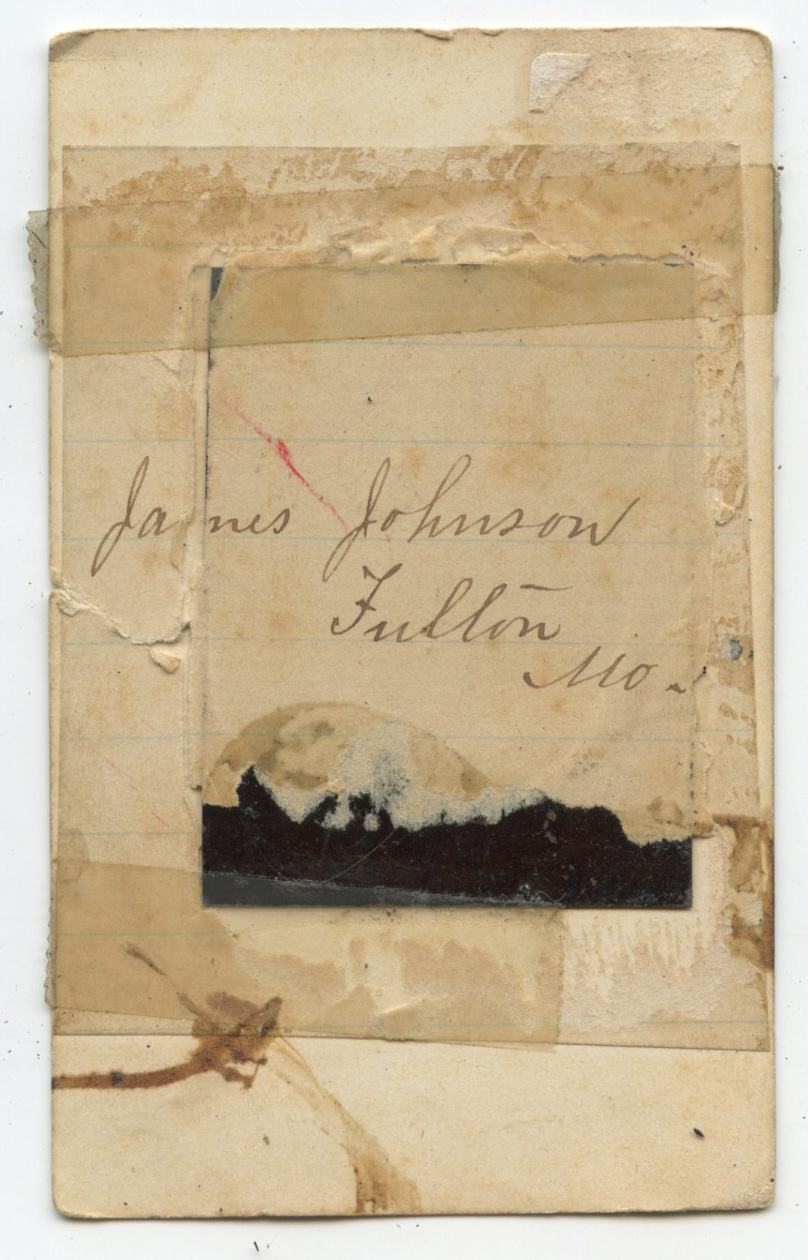 James Johnson
Fulton
Mo.